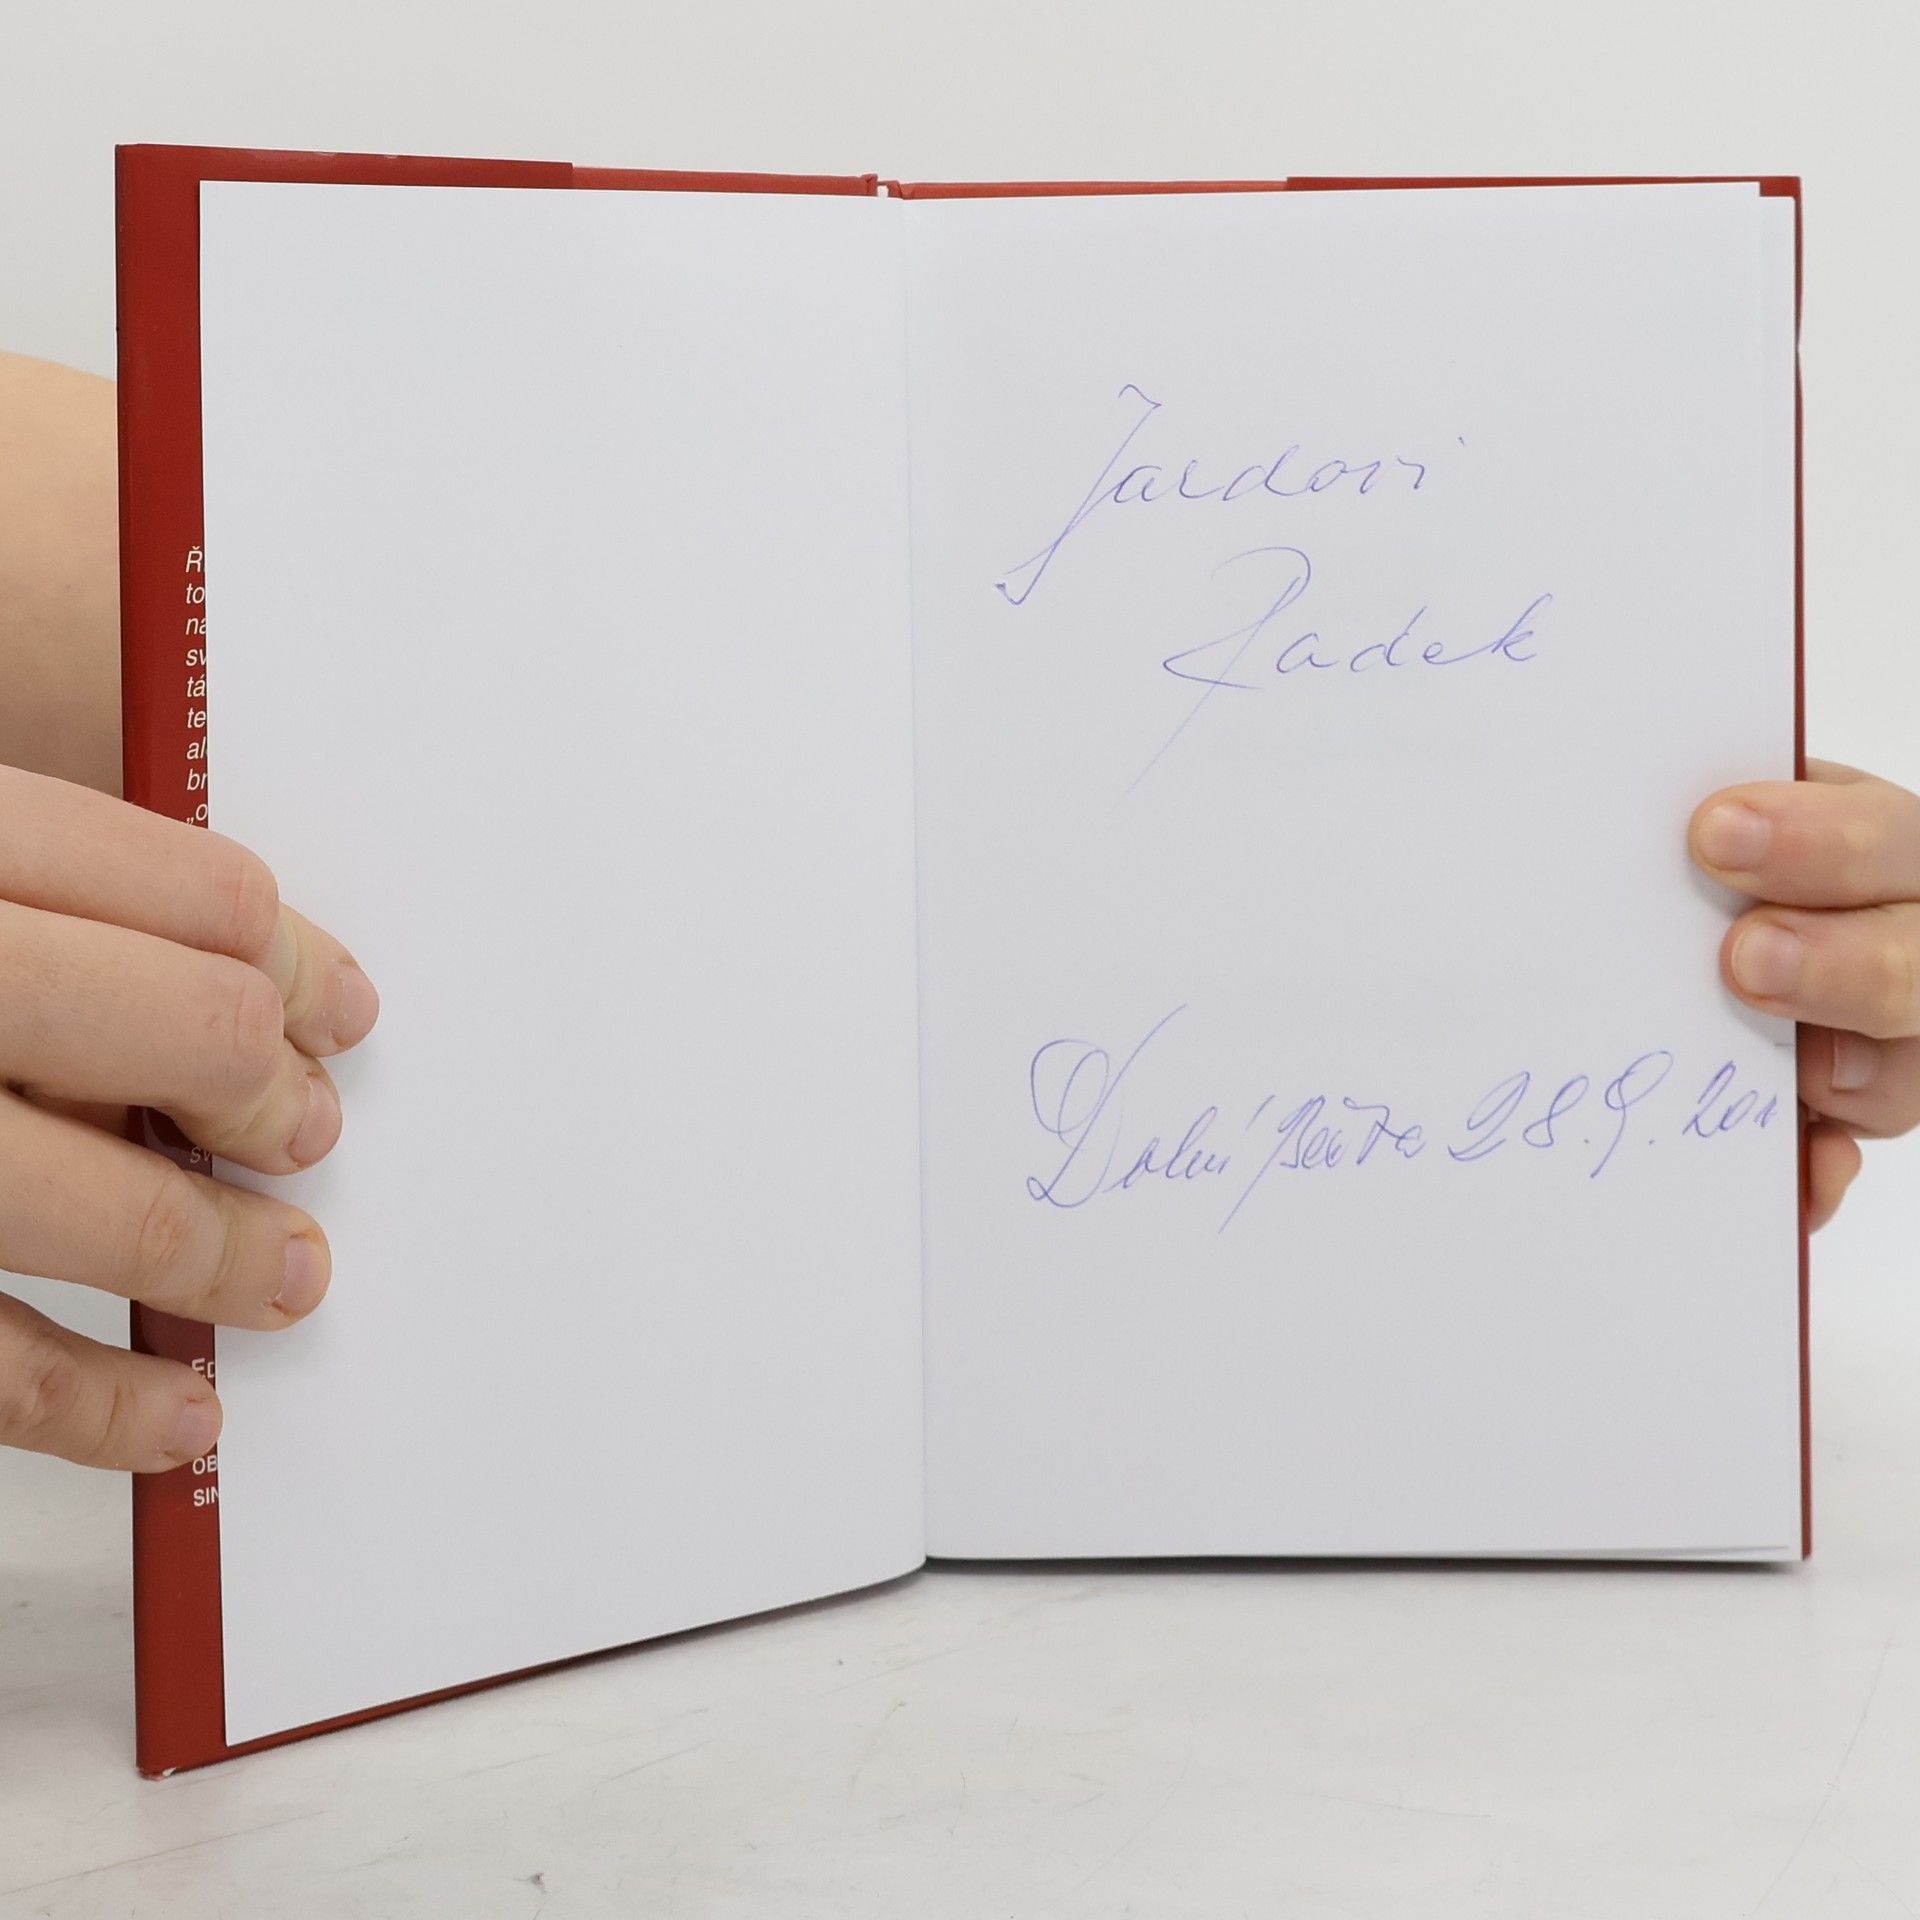 Jardovi
Radek
Dolní 28.9.
Ř
to
na
sv
tá
te
al
br
„o
sv
ED
OB
SIN